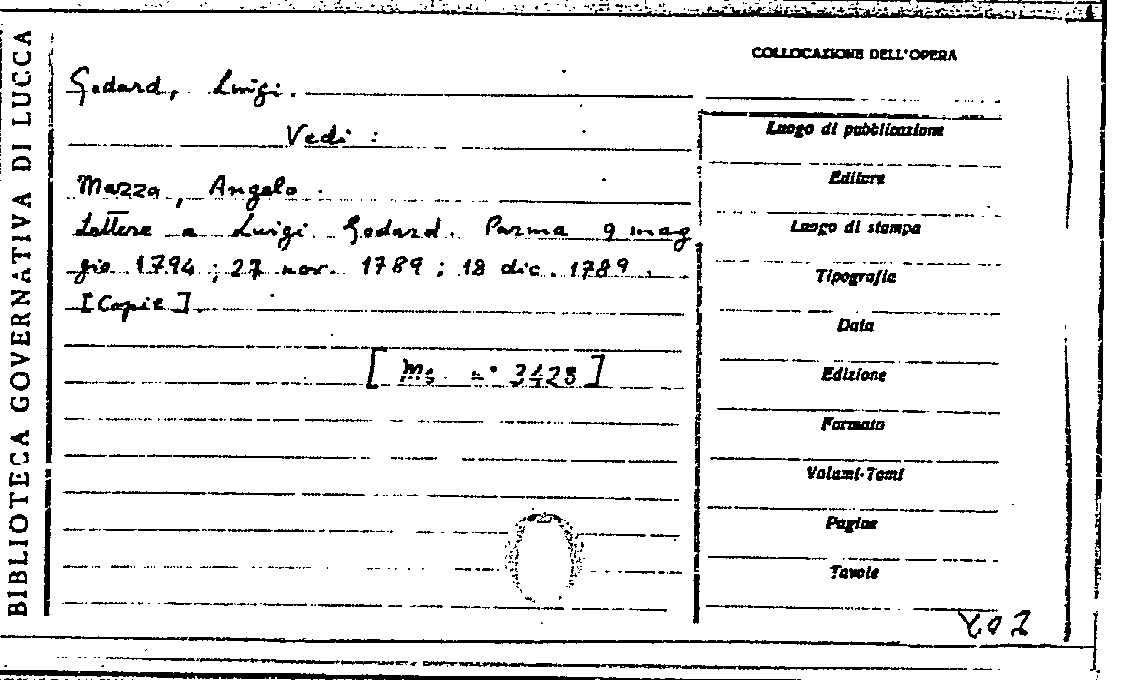 BIBLIOTECA GOVERNATIVA DI LUCCA
Godard, Luigi.
Vedi :
Mazza, Angelo.
Lettere a Luigi Godard. Parma 9 mag
gio 1794 ; 27 nov. 1789 ; 18 dic. 1789.
[Copie].
[Ms. n° 3428]
COLLOCAZIONE DELL'OPERA
Luogo di pubblicazione
Editore
Luogo di stampa
Tipografia
Data
Edizione
Formato
Volumi-Tomi
Pagine
Tavole